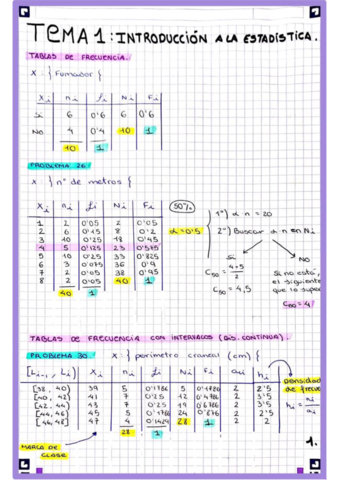 TEMA 1: INTRODUCCIÓN A LA ESTADÍSTICA.
TABLAS DE FRECUENCIA.
X { Fumador }
Xi ni fi Ni Fi
Sí 6 0'6 6 0'6
No 4 0'4 10 1
10 1
PROBLEMA 26
X { nº de metros }
Xi ni fi Ni Fi
1 2 0'05 2 0'05
2 6 0'15 8 0'2
3 10 0'25 18 0'45
4 5 0'125 23 0'575
5 10 0'25 33 0'825
6 3 0'075 36 0'9
7 2 0'05 38 0'95
8 2 0'05 40 1
40 1
50%
α=0'5
1º) α n = 20
2º) Buscar α n en Ni
Sí
C50 = 4+5 / 2
C50 = 4,5
No
Si no está, el siguiente que lo supera
C50 = 4
TABLAS DE FRECUENCIA CON INTERVALOS (DIS. CONTINUA).
PROBLEMA 30 X { perímetro craneal (cm) }
[Li-1, Li) Xi ni fi Ni Fi ai hi
[38, 40) 39 5 0'1786 5 0'1786 2 2'5
[40, 42) 41 7 0'25 12 0'4286 2 3'5
[42, 44) 43 7 0'25 19 0'6786 2 3'5
[44, 46) 45 5 0'1786 24 2 2'5
[46, 48] 47 4 0'1429 28 1 2 2
28 1
MARCA DE CLASE
densidad de frecu
hi = ni / ai
1.